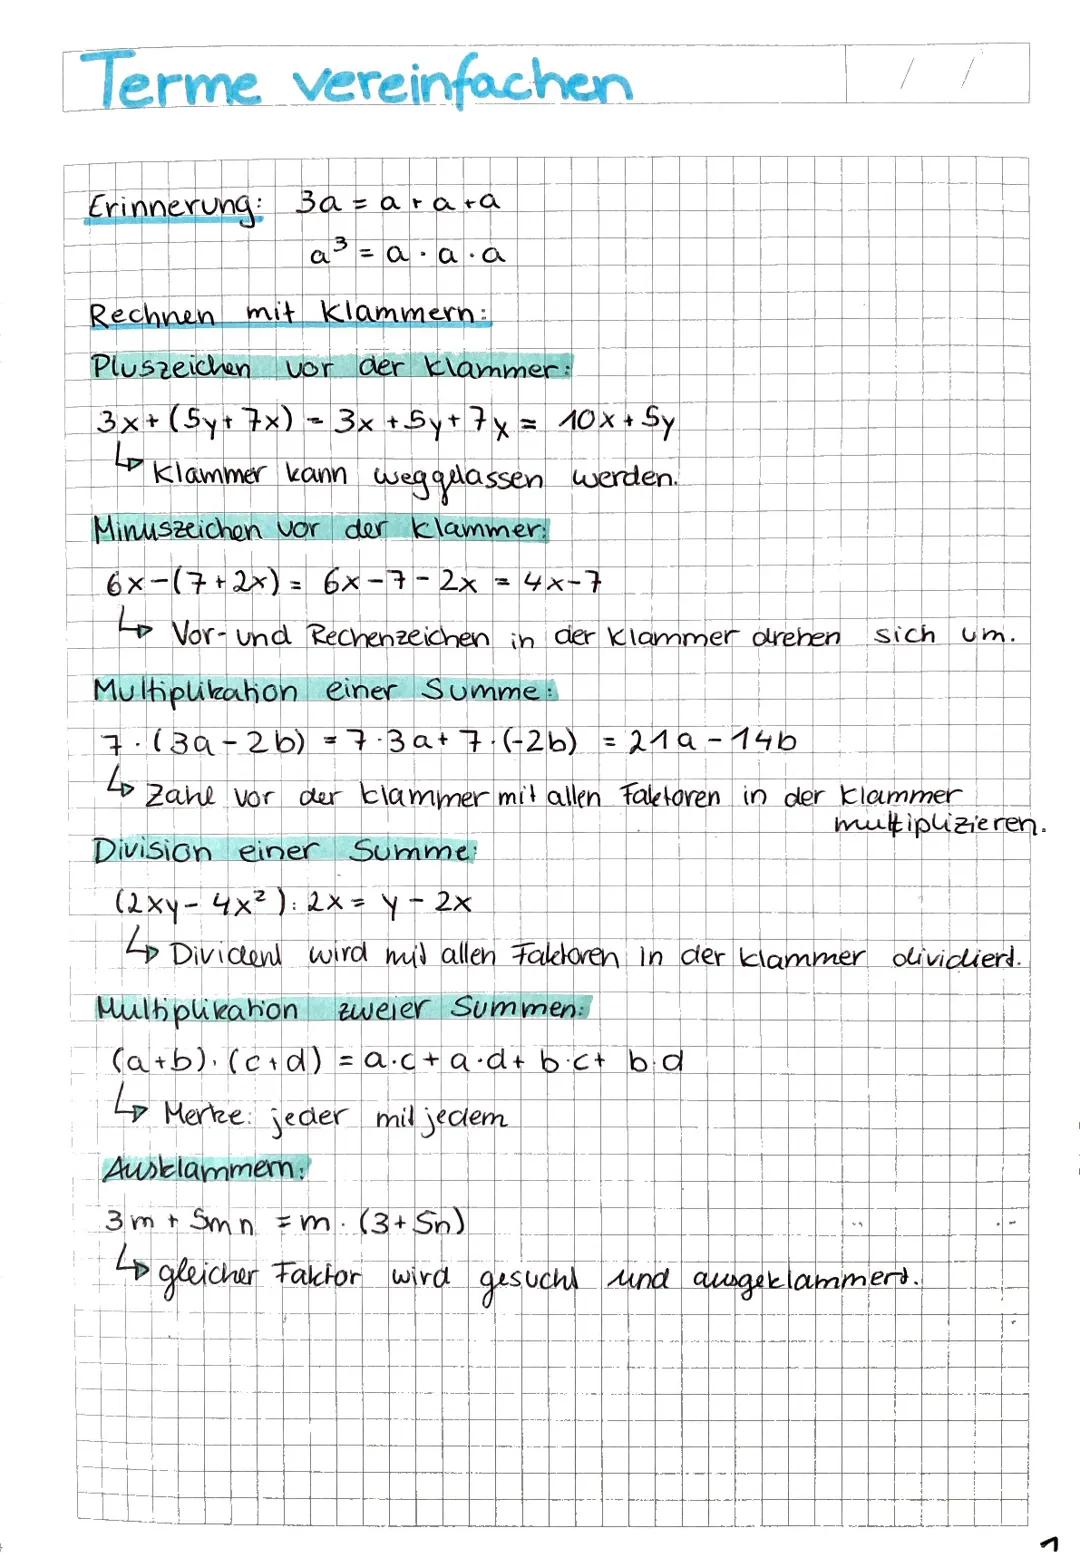 Terme vereinfachen / /
Erinnerung: 3a = a + a + a
a³ = a · a · a
Rechnen mit Klammern:
Pluszeichen vor der Klammer:
3x + (5y + 7x) = 3x + 5y + 7x = 10x + 5y
↳ Klammer kann weggelassen werden.
Minuszeichen vor der Klammer:
6x - (7 + 2x) = 6x - 7 - 2x = 4x - 7
↳ Vor- und Rechenzeichen in der Klammer drehen sich um.
Multiplikation einer Summe:
7 · (3a - 2b) = 7 · 3a + 7 · (-2b) = 21a - 14b
↳ Zahl vor der Klammer mit allen Faktoren in der Klammer
multiplizieren.
Division einer Summe:
(2xy - 4x²) : 2x = y - 2x
↳ Dividend wird mit allen Faktoren in der Klammer dividiert.
Multiplikation zweier Summen:
(a + b) · (c + d) = a · c + a · d + b · c + b · d
↳ Merke: jeder mit jedem
Ausklammern:
3m + 5mn = m · (3 + 5n)
↳ gleicher Faktor wird gesucht und ausgeklammert.
1